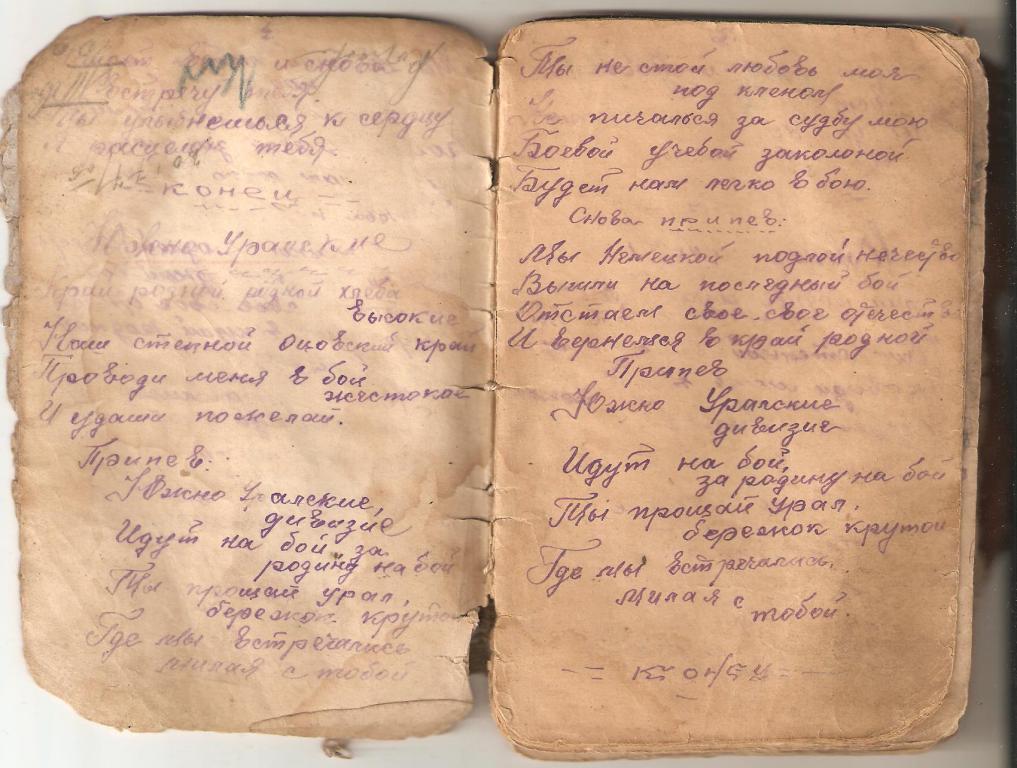 и снова
встречу тебя.
Ты улыбнешься к сердцу
тебя
= конец =
Южно Уралские
Край родной, родной хлеба
высокие
Наш степной край
Проводи меня в бой
жестокое
И удаши пожелай.
Припев:
Южно Уралские,
дивизие
Идут на бой за
родину на бой
Ты прощай Урал,
бережок крутой
Где мы встречались
милая с тобой
Ты не стой любовь моя
под кленом
Не пичалься за судбу мою
Боевой учебой заколоной
Будет нам легко в бою.
Снова припев:
Мы Немецкой подлой нечество
Вышли на последный бой
Отстаем свое свое отечеств
И вернемся в край родной
Припев
Южно Уралские
дивизие
Идут на бой,
за родину на бой
Ты прощай Урал,
бережок крутой
Где мы встречались,
милая с
тобой.
-= конец =-